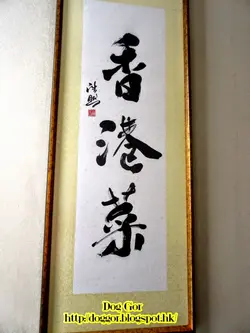 香港菜
Dog Gor
http://doggor.blogspot.hk/